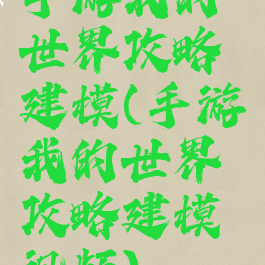 手游我的
世界攻略
建模(手游
我的世界
攻略建模
视频)